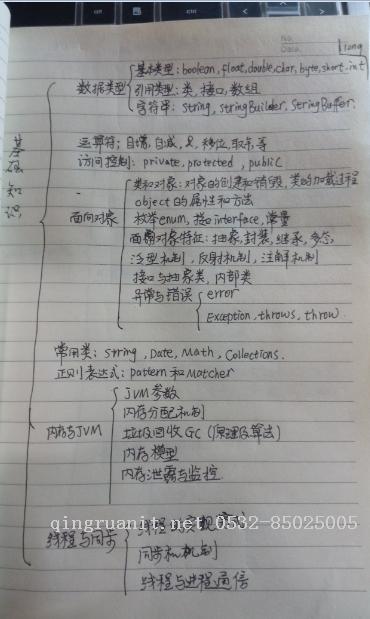 No.
Date.
Liang
基础知识
数据类型
基本类型: boolean, float, double, char, byte, short, int
引用类型: 类, 接口, 数组
字符串: String, StringBuilder, StringBuffer.
运算符; 自增, 自减, &, 移位, 取余等
访问控制: private, protected, public
面向对象
类和对象: 对象的创建和销毁, 类的加载过程
object的属性和方法
枚举enum, 接口interface, 常量
面向对象特征: 抽象, 封装, 继承, 多态,
泛型机制, 反射机制, 注解机制
接口与抽象类, 内部类
异常与错误
error
Exception, throws, throw.
常用类: String, Date, Math, Collections.
正则表达式: pattern和Matcher
内存与JVM
JVM参数
内存分配机制
垃圾回收GC (原理及算法)
内存模型
内存泄露与监控
qingruanit.net 0532-85025005
线程与同步
同步和机制
线程与进程通信